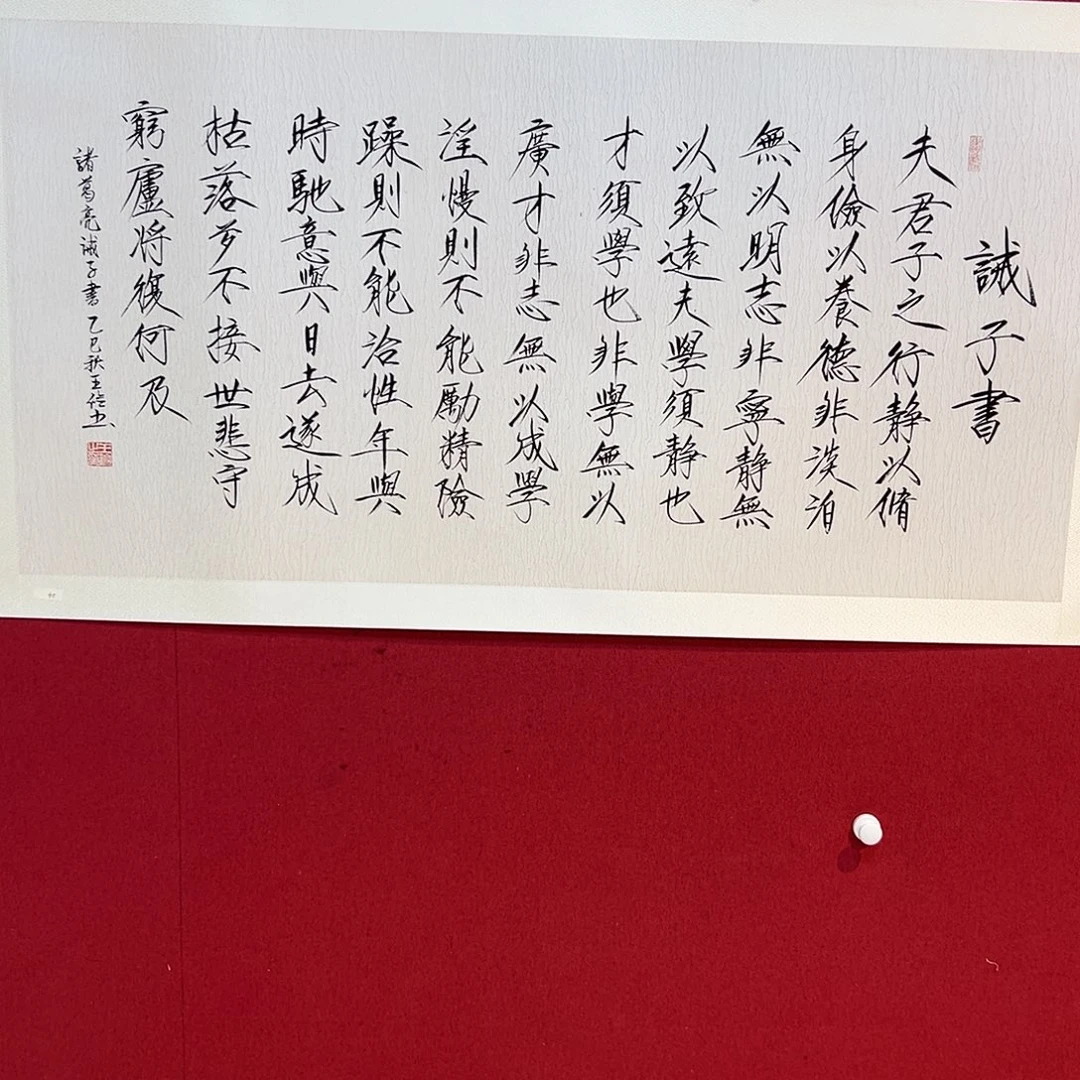 誡子書
夫君子之行静以脩
身儉以養德非淡泊
無以明志非寧静無
以致遠夫學須静也
才須學也非學無以
廣才非志無以成學
淫慢則不能勵精險
躁則不能治性年與
時馳意與日去遂成
枯落多不接世悲守
窮廬將復何及
諸葛亮誡子書乙巳秋王信书